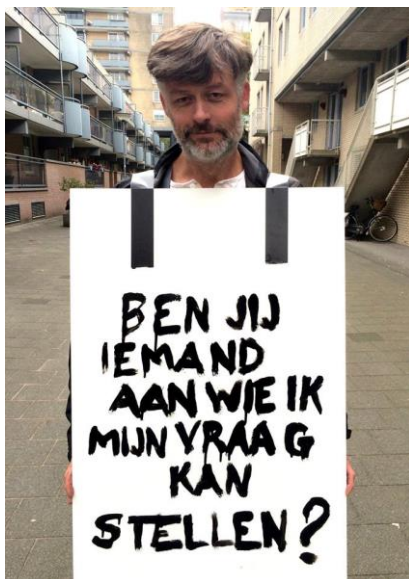 BEN JIJ
IEMAND
AAN WIE IK
MIJN VRAAG
KAN
STELLEN?